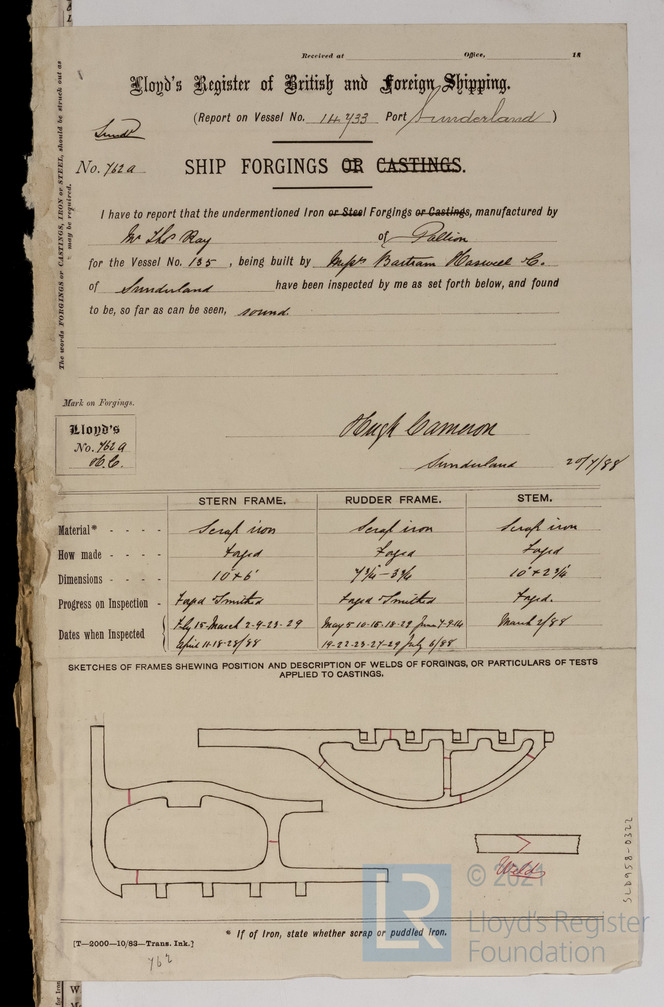 Received at Office, 18
Lloyd's Register of British and Foreign Shipping.
(Report on Vessel No. 14733 Port Sunderland)
Sundd
No. 762a SHIP FORGINGS OR CASTINGS.
I have to report that the undermentioned Iron or Steel Forgings or Castings, manufactured by
Mr Thos Ray of Pallion
for the Vessel No. 135, being built by Messrs Bartram Haswell & Co.
of Sunderland have been inspected by me as set forth below, and found
to be, so far as can be seen, sound.
The words FORGINGS or CASTINGS, IRON or STEEL, should be struck out as
may be required.
Mark on Forgings.
Lloyd's
No. 762a
H.C.
Hugh Cameron
Sunderland 20/7/88
STERN FRAME. RUDDER FRAME. STEM.
Material* - - - - Scrap iron Scrap iron Scrap iron
How made - - - - Forged Forged Forged
Dimensions - - - - 10"+6" 7 3/4 - 3 3/4 10"+2 3/4
Progress on Inspection - Forged & Smithed Forged & Smithed Forged.
Dates when Inspected { Feby 15 March 2-9-23-29 May 5-10-15-18-29 June 7-9-14 March 2/88
April 11-18-28/88 19-22-23-27-29 July 6/88
SKETCHES OF FRAMES SHEWING POSITION AND DESCRIPTION OF WELDS OF FORGINGS, OR PARTICULARS OF TESTS
APPLIED TO CASTINGS.
Welds
SLD958-0322
© 2021
Lloyd's Register
Foundation
LR
* If of Iron, state whether scrap or puddled iron.
[T—2000—10/83—Trans. Ink.]
762